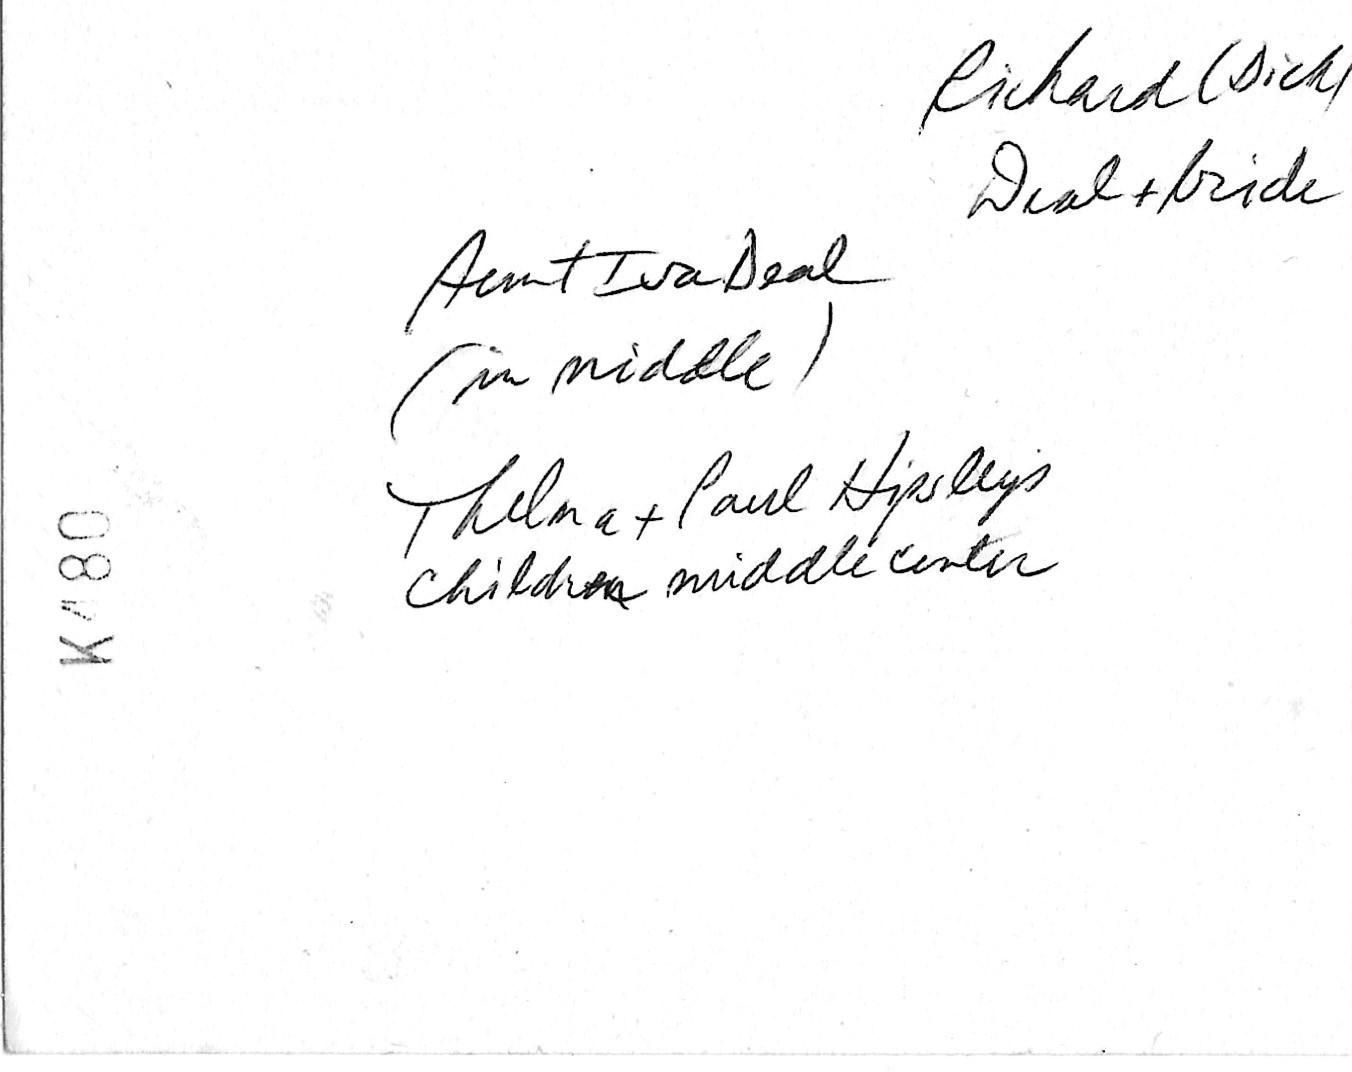 Richard (Dick)
Deal + bride
Aunt Iva Deal
(in middle)
Thelma + Paul Hipsley's
children middle center